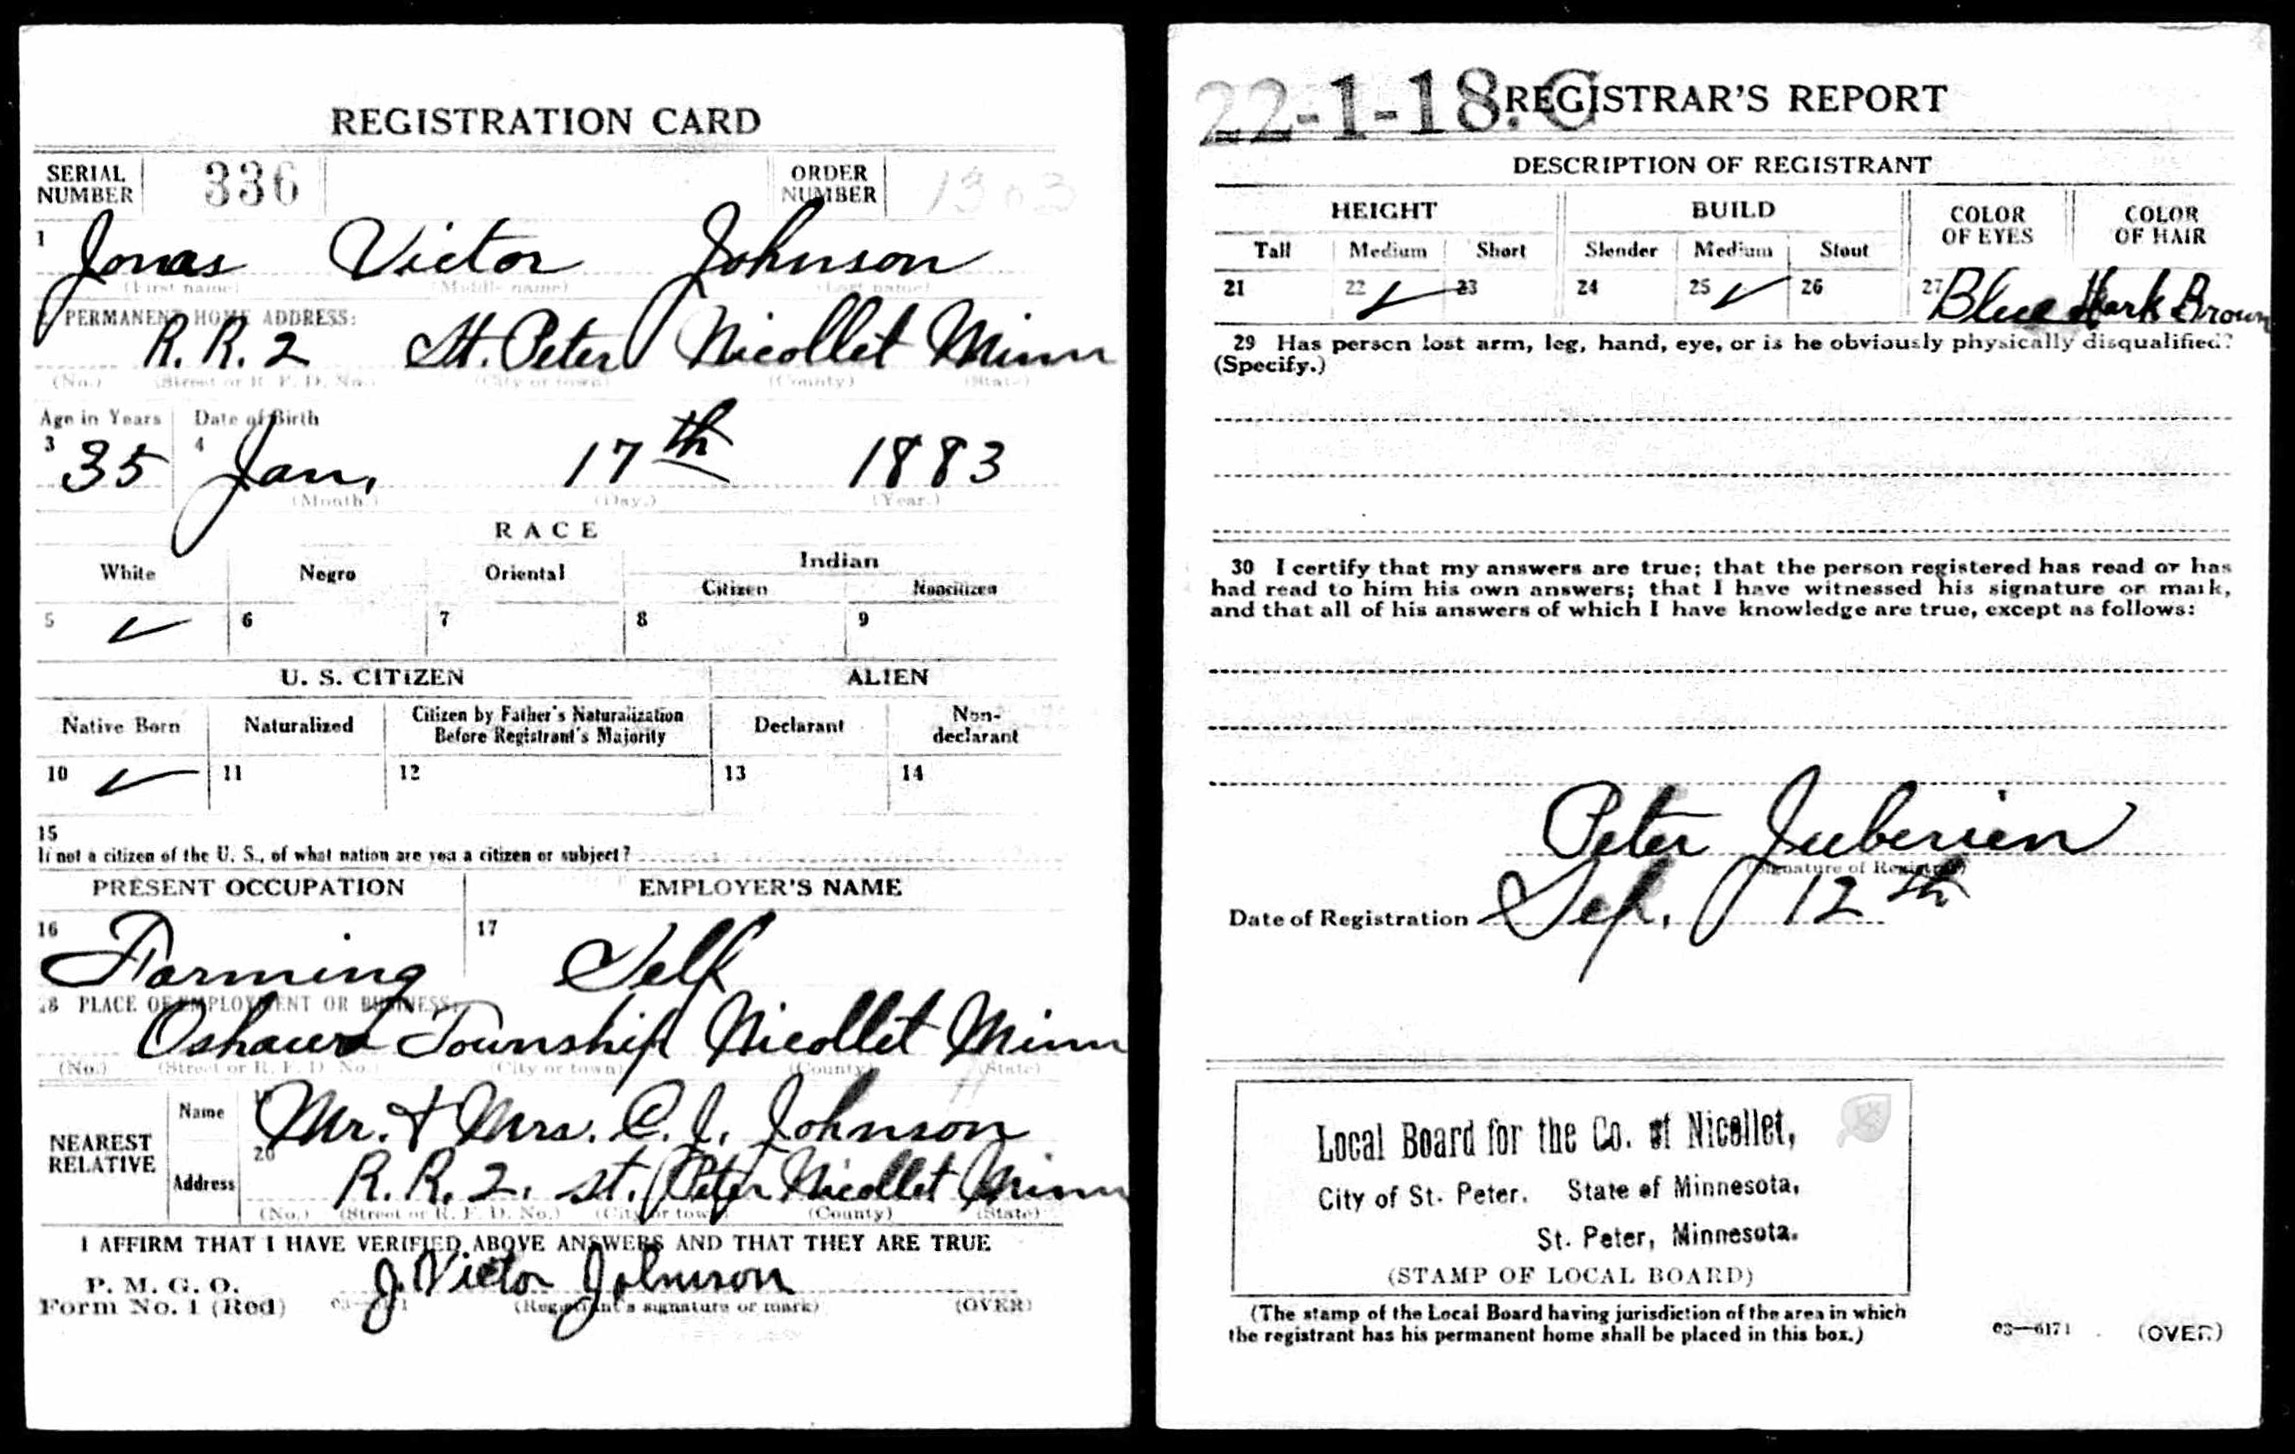 REGISTRATION CARD
SERIAL NUMBER 336 ORDER NUMBER 1303
1 Jonas Victor Johnson
(First name) (Middle name) (Last name)
2 PERMANENT HOME ADDRESS:
R.R.2 St. Peter Nicollet Minn
(No.) (Street or R. F. D. No.) (City or town) (County) (State)
Age in Years Date of Birth
3 35 4 Jan. 17th 1883
(Month.) (Day.) (Year.)
RACE
White Negro Oriental Indian
Citizen Noncitizen
5 ✓ 6 7 8 9
U. S. CITIZEN ALIEN
Native Born Naturalized Citizen by Father's Naturalization Before Registrant's Majority Declarant Non-declarant
10 ✓ 11 12 13 14
15
If not a citizen of the U. S., of what nation are you a citizen or subject?
PRESENT OCCUPATION EMPLOYER'S NAME
16 Farming 17 Self
18 PLACE OF EMPLOYMENT OR BUSINESS:
Oshawa Township Nicollet Minn
(No.) (Street or R. F. D. No.) (City or town) (County) (State)
NEAREST RELATIVE
Name 19 Mr. & Mrs. C. J. Johnson
Address 20 R. R. 2. St. Peter Nicollet Minn
(No.) (Street or R. F. D. No.) (City or town) (County) (State)
I AFFIRM THAT I HAVE VERIFIED ABOVE ANSWERS AND THAT THEY ARE TRUE
P. M. G. O.
Form No. 1 (Red) J. Victor Johnson
(Registrant's signature or mark) (OVER)
22-1-18. C REGISTRAR'S REPORT
DESCRIPTION OF REGISTRANT
HEIGHT BUILD COLOR OF EYES COLOR OF HAIR
Tall Medium Short Slender Medium Stout
21 22 ✓ 23 24 25 ✓ 26 27 Blue Dark Brown
29 Has person lost arm, leg, hand, eye, or is he obviously physically disqualified?
(Specify.)
30 I certify that my answers are true; that the person registered has read or has
had read to him his own answers; that I have witnessed his signature or mark,
and that all of his answers of which I have knowledge are true, except as follows:
Peter Juberien
(Signature of Registrar)
Date of Registration Sep. 12th
Local Board for the Co. of Nicollet,
City of St. Peter. State of Minnesota,
St. Peter, Minnesota.
(STAMP OF LOCAL BOARD)
(The stamp of the Local Board having jurisdiction of the area in which
the registrant has his permanent home shall be placed in this box.)
03—6171 (OVER)